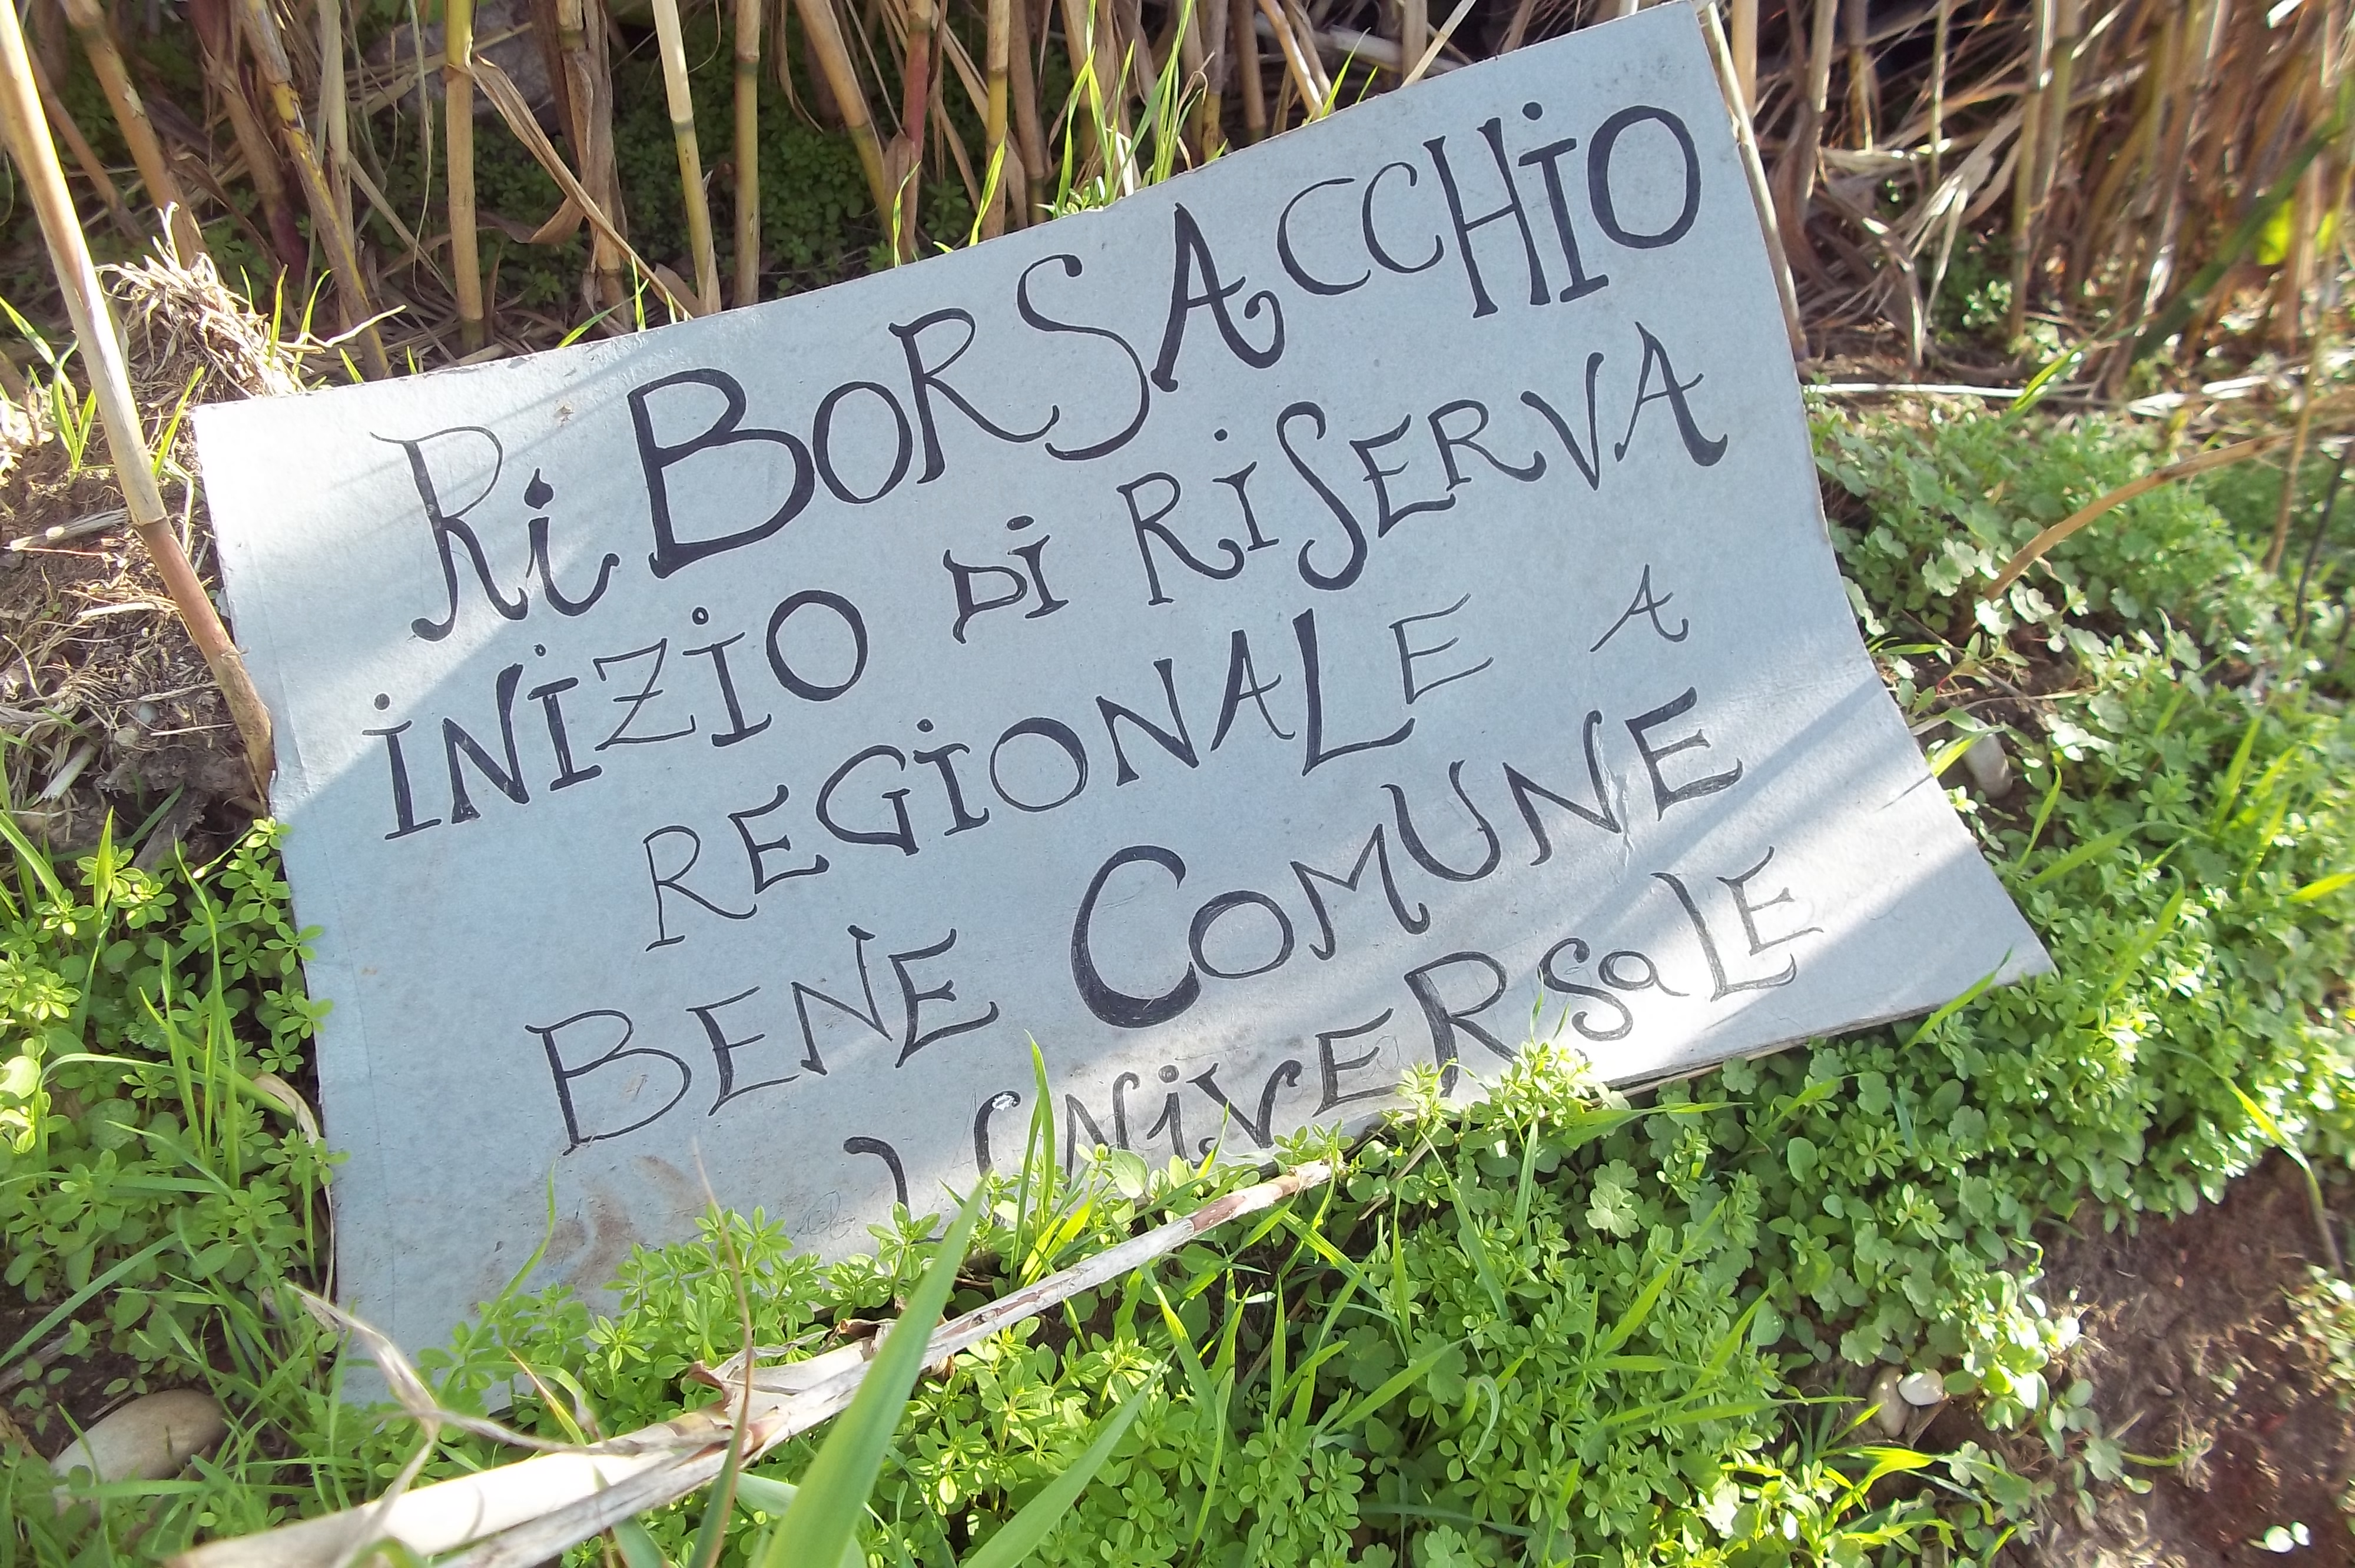 Ri BORSACCHiO
iNiZiO Di RiSERVA
REGiONALE A
BENE COMUNE
UNiVERSaLE